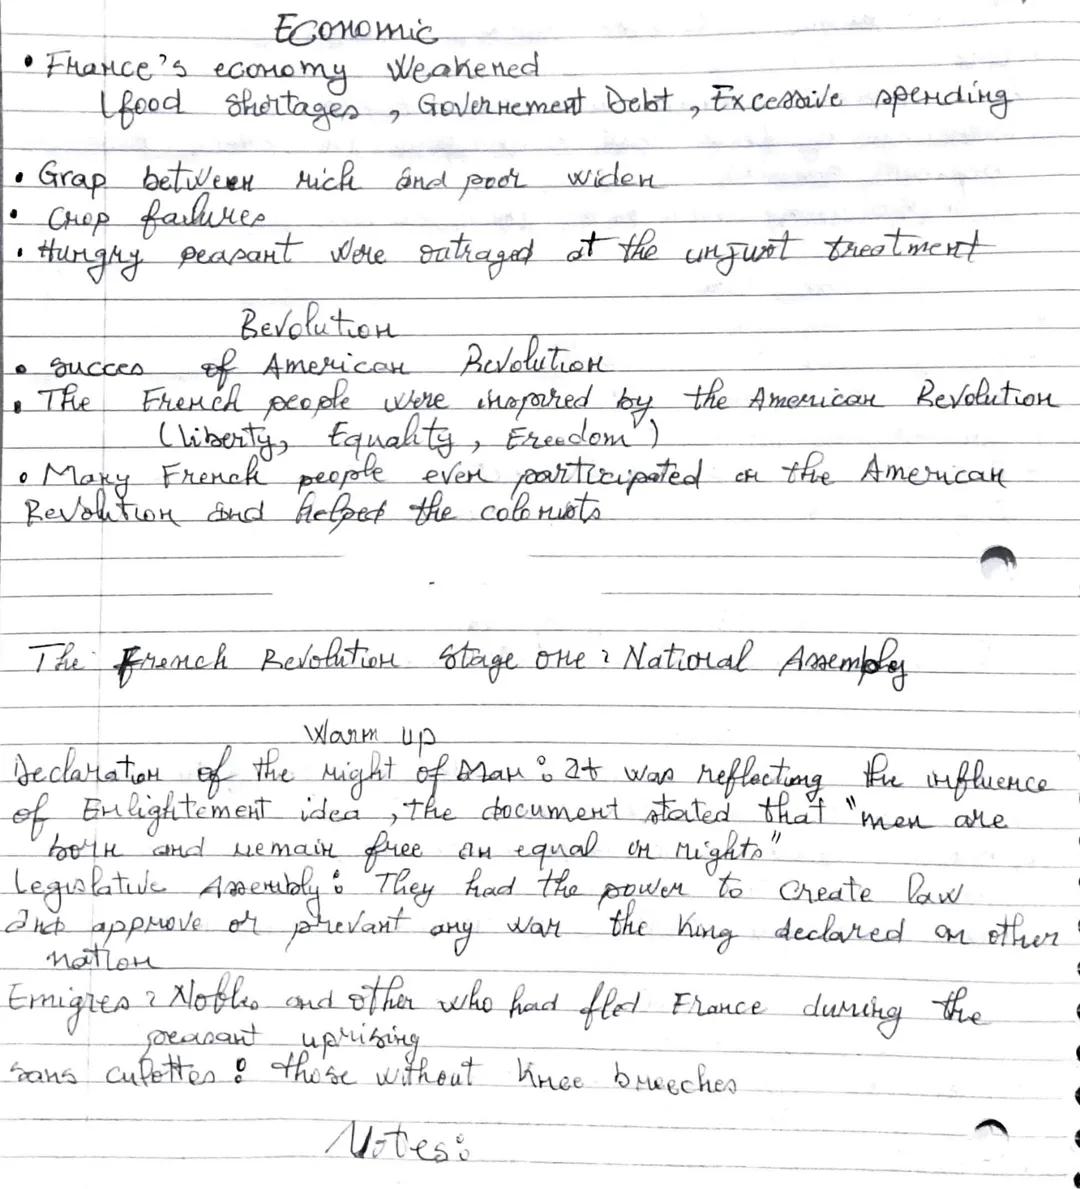 Economic
• France's economy Weakened
(food shortages, Governement Debt, Excessive spending
• Grap between rich and poor widen
• Crop failures
• Hungry peasant were outraged at the unjust treatment
Revolution
• succes of American Revolution
• The French people were inspired by the American Revolution
(liberty, Equality, Freedom)
• Many French people even participated on the American
Revolution and helped the colonists
The French Revolution Stage one : National Assembly
Warm up
Declaration of the right of Man : It was reflecting the influence
of Enlightement idea, the document stated that "men are
born and remain free an equal in rights"
Legislative Assembly : They had the power to create law
and approve or prevant any war the King declared on other
nation
Emigres : Nobles and other who had fled France during the
peasant uprising
sans culottes : those without knee breeches
Notes :